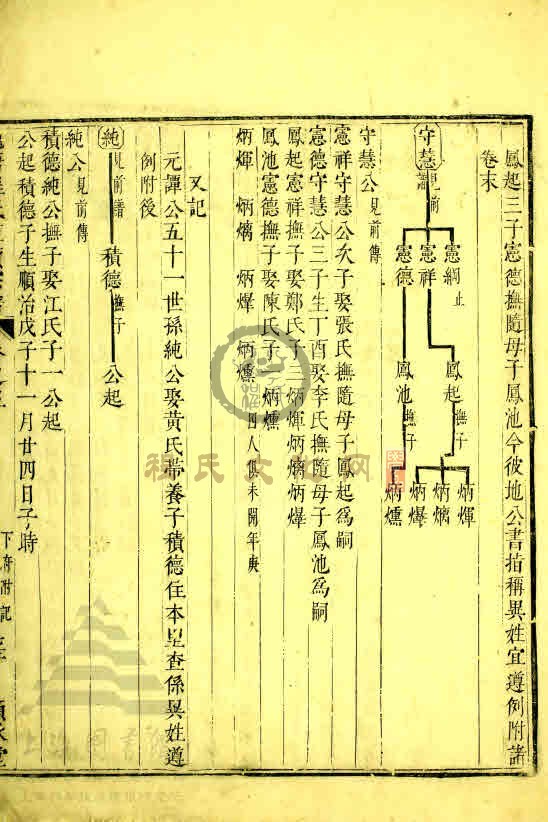 鳳起三子憲德撫隨母子鳳池今彼地公書指稱異姓宜遵例附諸
卷末
守慧 見前譜
憲綱 止
憲祥
憲德
鳳起 撫子
鳳池 撫子
炳煇
炳熵
炳㸅
炳燻
守慧公 見前傳
憲祥守慧公次子娶張氏撫隨母子鳳起為嗣
憲德守慧公三子生丁酉娶李氏撫隨母子鳳池為嗣
鳳起憲祥撫子娶鄭氏子三炳煇炳熵炳㸅
鳳池憲德撫子娶陳氏子一炳燻
炳煇 炳熵 炳㸅 炳燻 四人俱未開年庚
又記
元譚公五十一世孫純公娶黃氏帶養子積德住本里查係異姓遵
例附後
純 見前譜
積德 撫子
公起
純公 見前傳
積德純公撫子娶江氏子一公起
公起積德子生順治戊子十一月廿四日子時
下府附記
程氏文化网
上海图书馆